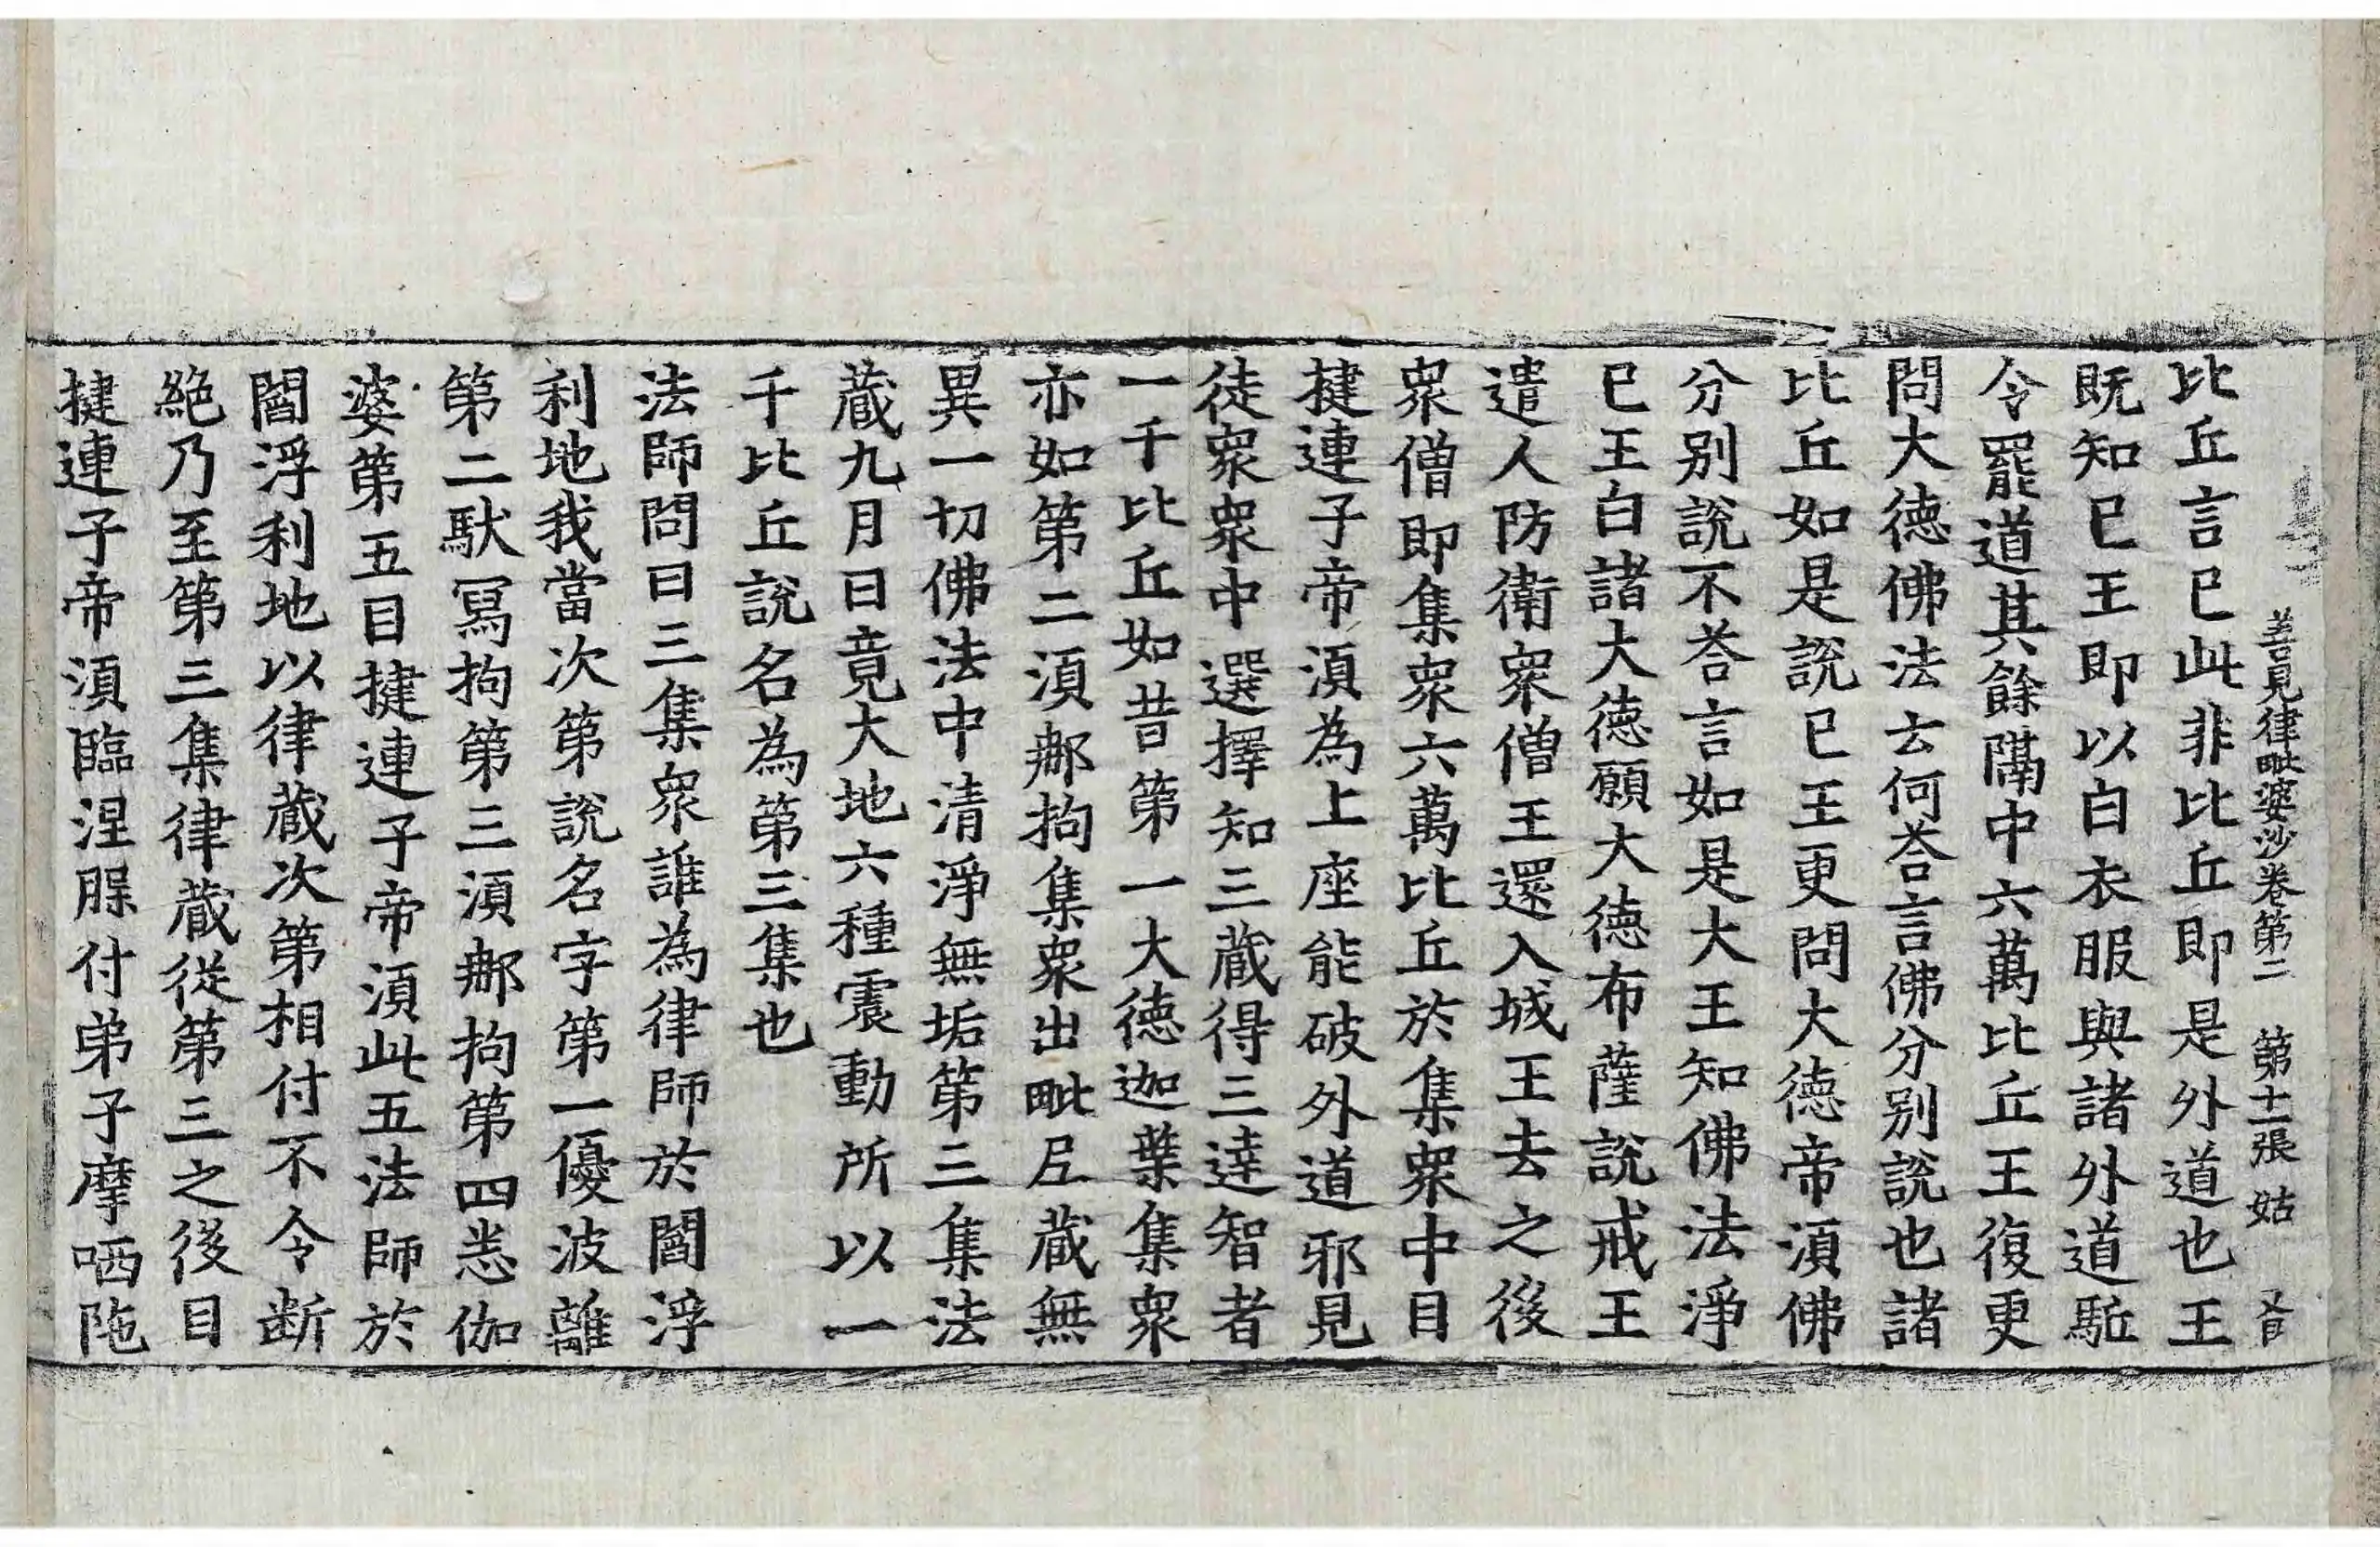 善見律毗婆沙卷第二 第十一張 姑
比丘言已此非比丘即是外道也王
既知已王即以白衣服與諸外道駈
令罷道其餘隔中六萬比丘王復更
問大德佛法云何荅言佛分別說也諸
比丘如是說已王更問大德帝湏佛
分別說不荅言如是大王知佛法淨
已王白諸大德願大德布薩說戒王
遣人防衛衆僧王還入城王去之後
衆僧即集衆六萬比丘於集衆中目
揵連子帝湏為上座能破外道邪見
徒衆衆中選擇知三藏得三達智者
一千比丘如昔第一大德迦葉集衆
亦如第二湏那拘集衆出毗尼藏無
異一切佛法中清淨無垢第三集法
藏九月日竟大地六種震動所以一
千比丘說名為第三集也
法師問曰三集衆誰為律師於閻浮
利地我當次第說名字第一優波離
第二馱寫拘第三湏那拘第四悉伽
婆第五目揵連子帝湏此五法師於
閻浮利地以律藏次第相付不令断
絕乃至第三集律藏從第三之後目
揵連子帝湏臨涅槃付弟子摩哂陁